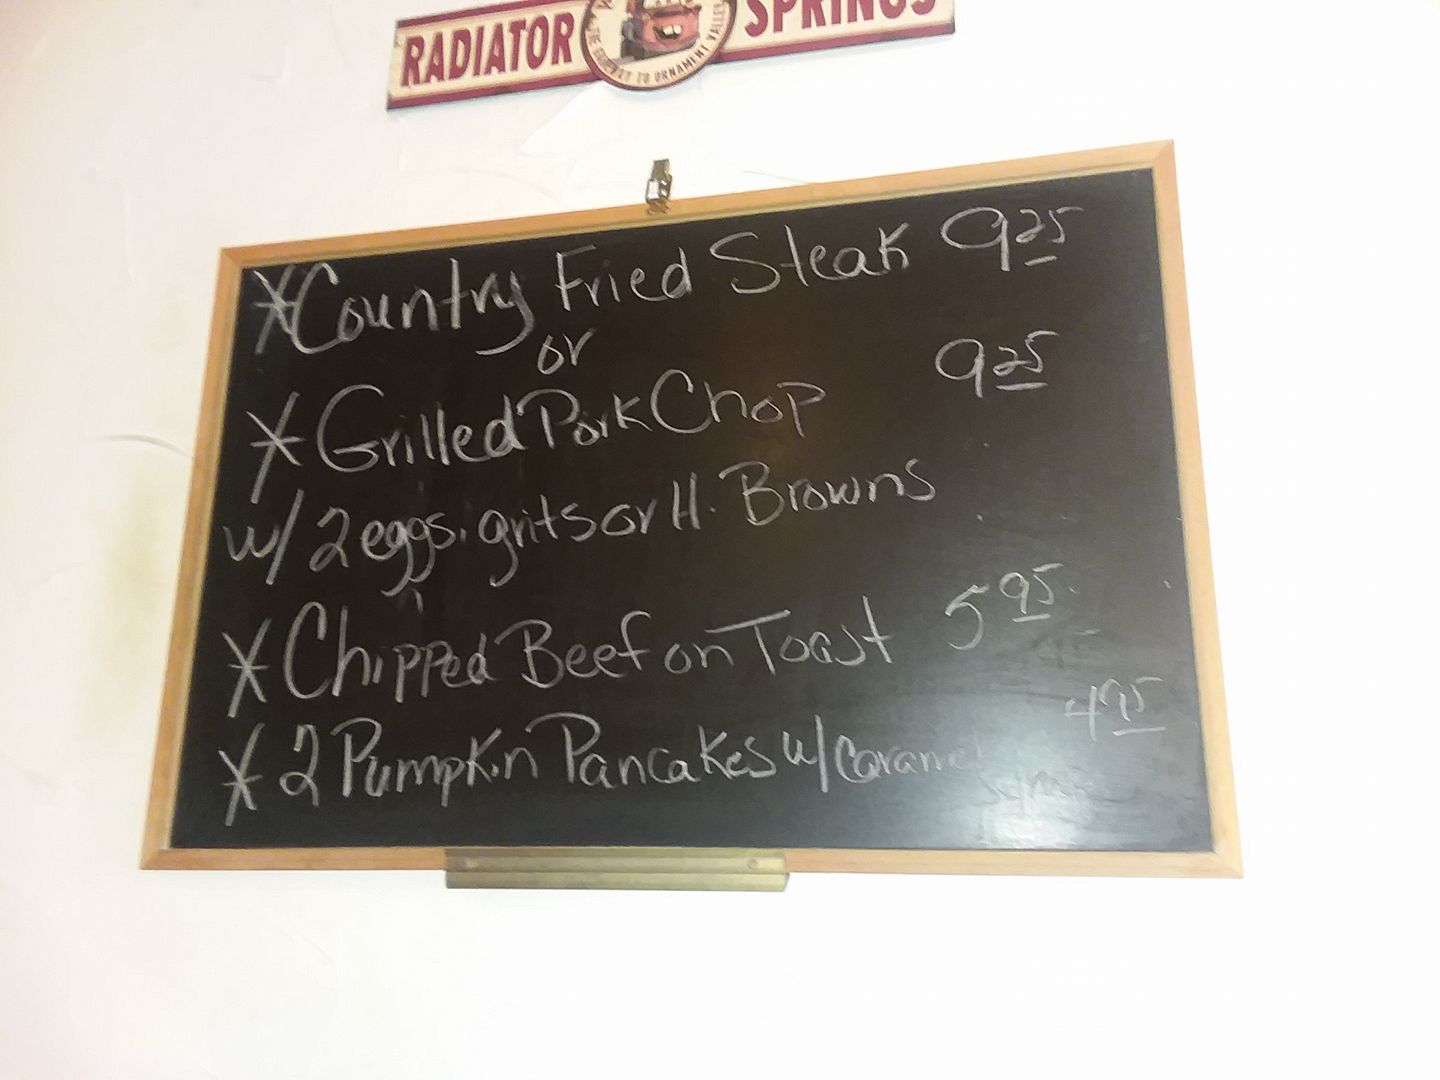 RADIATOR SPRINGS
THE GATEWAY TO ORNAMENT VALLEY
*Country Fried Steak 9 25
or
* Grilled Pork Chop 9 25
w/ 2 eggs. grits or H. Browns
* Chipped Beef on Toast 5 95
* 2 Pumpkin Pancakes w/ Caramel 4 95